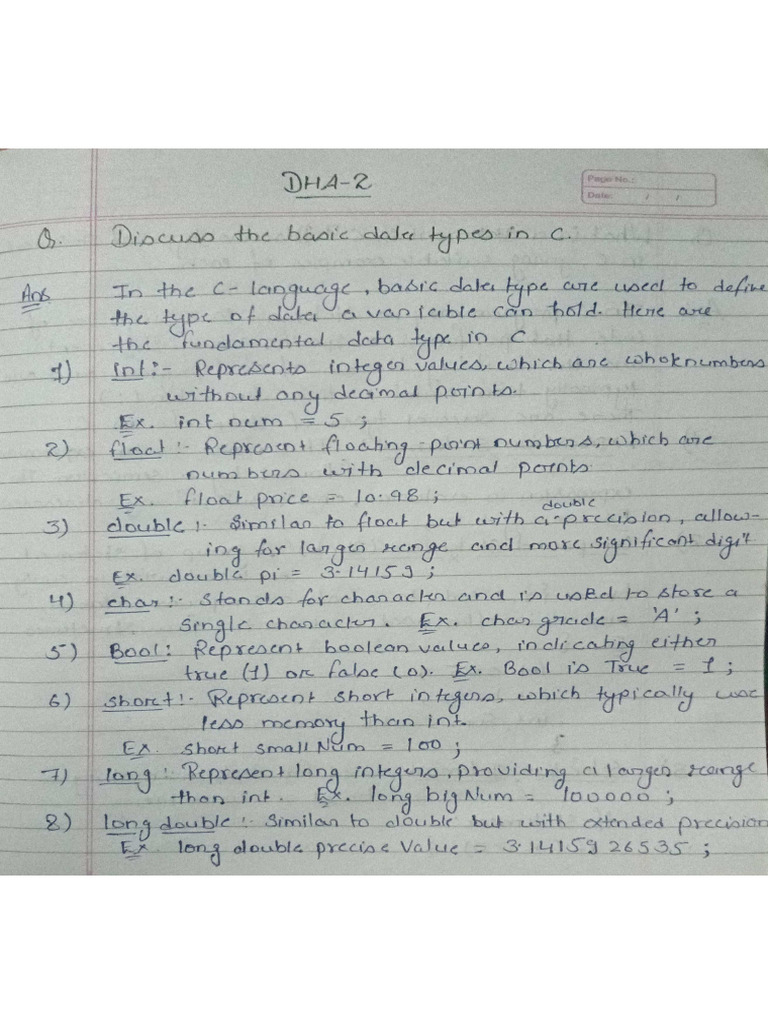 DHA-2
Page No.:
Date: / /
Q. Discuss the basic data types in C.
Ans In the C-language, basic data type are used to define
the type of data a variable can hold. Here are
the fundamental data type in C.
1) int:- Represents integer values, which are whole numbers
without any decimal points.
Ex. int num = 5;
2) float:- Represent floating-point numbers, which are
numbers with decimal points
Ex. float price = 10.98;
double
3) double:- Similar to float but with a precision, allow-
ing for larger range and more significant digit
Ex. double pi = 3.14159;
4) char:- Stands for character and is used to store a
single character. Ex. char grade = 'A';
5) Bool: Represent boolean values, indicating either
true (1) or false (0). Ex. Bool is True = 1;
6) short:- Represent short integers, which typically use
less memory than int.
Ex. short small Num = 100;
7) long:- Represent long integers, providing a larger range
than int. Ex. long big Num = 100000;
8) long double:- Similar to double but with extended precision
Ex long double precise Value = 3.14159 26535;